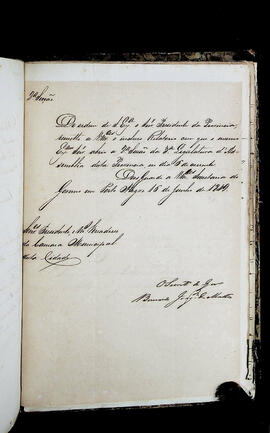 2ª Secção
De ordem de S. Exª o Snr. Presidente da Provincia,
remetto a Vmces o incluso Relatorio com que o mesmo
Exmo Snr. abrio a Sessão da Legislatura d'As-
semblea desta Provincia no dia do corrente
Deos Guarde a Vmces Secretaria do
Governo em Porto Alegre 16 de Junho de
Snres Presidente, e Vereadores
da Camara Municipal
desta Cidade
O Secretº do Gov
Bernardo